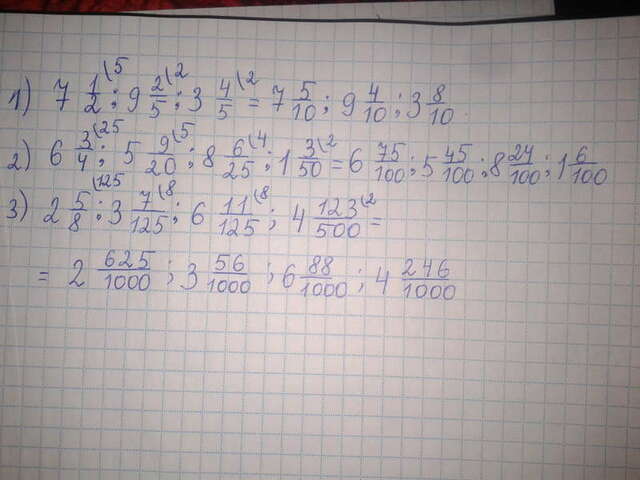 1) 7 1/2 \5 ; 9 2/5 \2 ; 3 4/5 \2 = 7 5/10 ; 9 4/10 ; 3 8/10 .
2) 6 3/4 \25 ; 5 9/20 \5 ; 8 6/25 \4 ; 1 3/50 \2 = 6 75/100 ; 5 45/100 ; 8 24/100 ; 1 6/100
3) 2 5/8 \125 ; 3 7/125 \8 ; 6 11/125 \8 ; 4 123/500 \2 =
= 2 625/1000 ; 3 56/1000 ; 6 88/1000 ; 4 246/1000